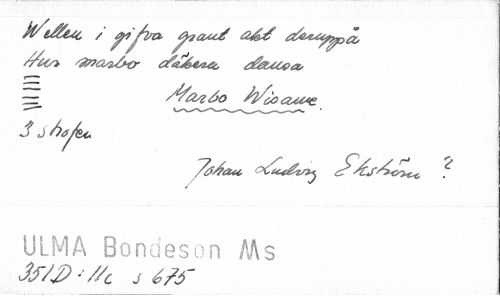 Wellen i gifva grant akt deruppå
Hur marbo däkera dansa
Marbo Wisane.
3 strofer
Johan Ludvig Ekström ?
ULMA Bondeson Ms
351D:11c s 675